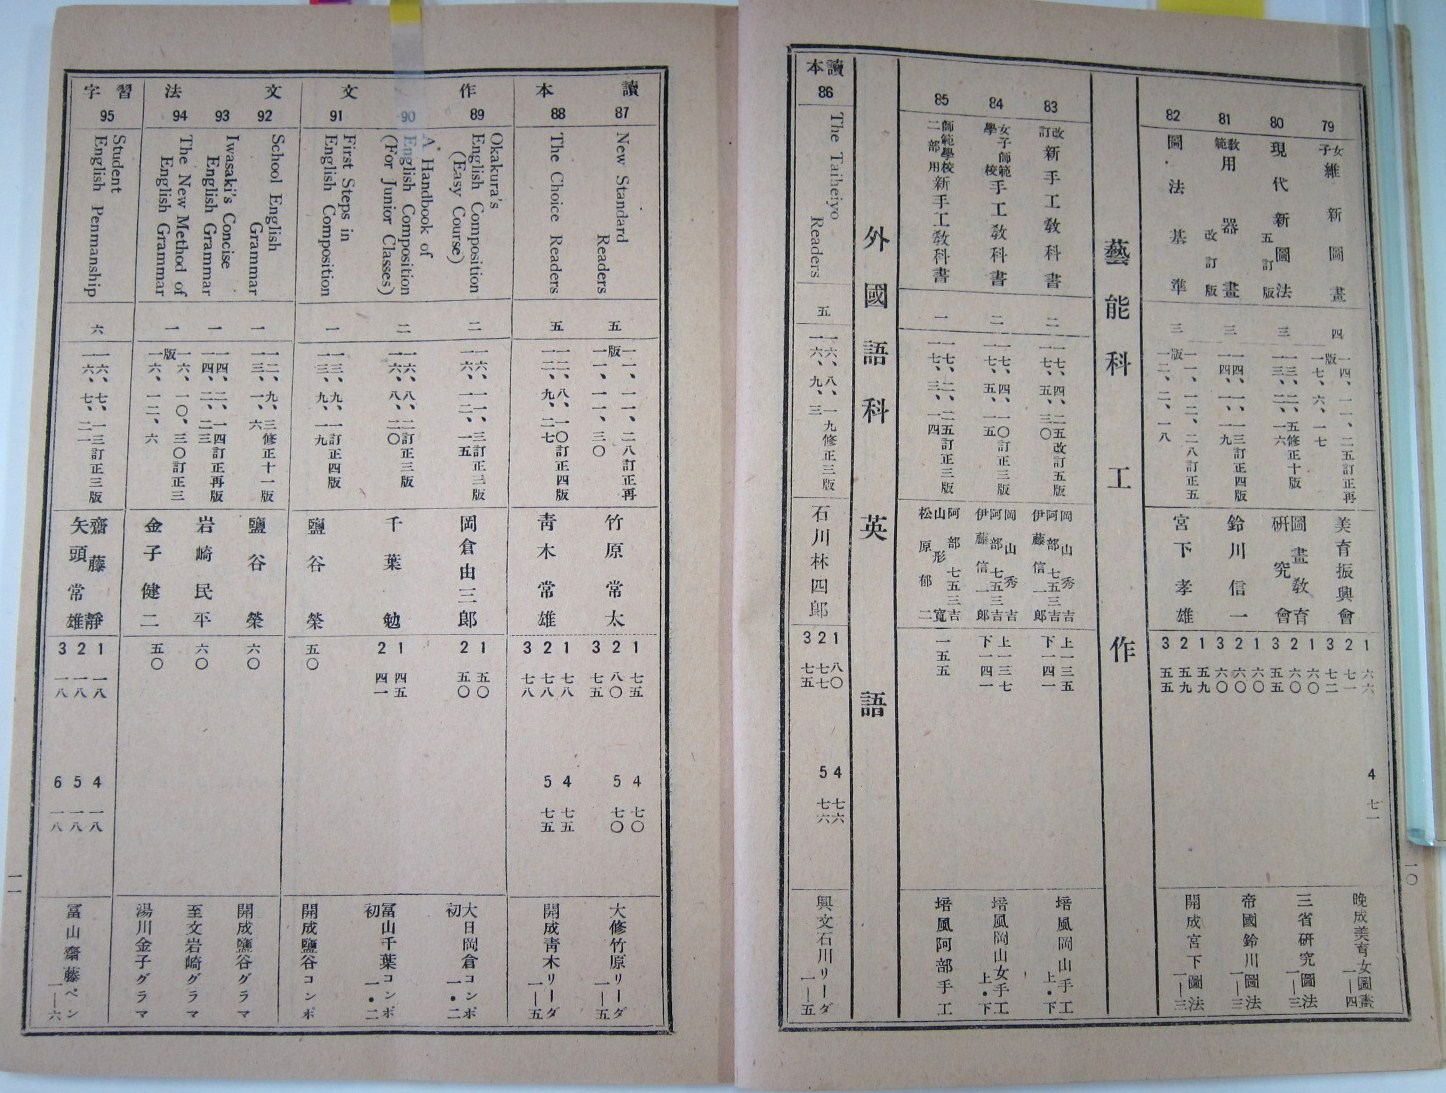 79
女子維新圖畫
四
一四、一一、二五訂正再版
一七、六、一七
美育振興會
1 六六
2 七一
3 七二
4 七一
晩成美育女圖畫
一—四
80
現代新圖法
五訂版
三
一三、二、五修正十版
一三、二、一六
圖畫敎育研究會
1 六〇
2 六〇
3 五五
三省研究圖法
一—三
81
敎範用器畫
改訂版
三
一四、一、一三訂正四版
一四、一、一九
鈴川信一
1 五九
2 六〇
3 六〇
帝國鈴川圖法
一—三
82
圖法基準
三
一一、一二、二八訂正五版
一二、二、一八
宮下孝雄
1 五九
2 五九
3 五五
開成宮下圖法
一—三
藝能科工作
83
改訂新手工敎科書
二
一七、四、二五改訂五版
一七、五、三〇
岡山秀吉
阿部七五三吉
伊藤信一郎
上一三五
下一四一
培風岡山手工
上・下
84
女子師範學校手工敎科書
二
一七、四、一〇訂正三版
一七、五、一五
岡山秀吉
阿部七五三吉
伊藤信一郎
上一三七
下一四一
培風岡山女手工
上・下
85
師範學校二部用新手工敎科書
一
一七、二、二五訂正三版
一七、三、一四
阿部七五三吉
山形寬
松原郁二
一五五
培風阿部手工
外國語科英語
讀本
86
The Taiheiyo Readers
五
一六、八、一九修正三版
一六、九、三
石川林四郎
1 八〇
2 七七
3 七五
4 七六
5 七六
興文石川リーダ
一—五
一〇
讀本
87
New Standard Readers
五
一一、一一、二八訂正再版
一一、一一、三〇
竹原常太
1 七五
2 八〇
3 七五
4 七〇
5 七〇
大修竹原リーダ
一—五
88
The Choice Readers
五
一二、八、一〇訂正四版
一二、九、二七
靑木常雄
1 七八
2 七八
3 七八
4 七五
5 七五
開成靑木リーダ
一—五
作文
89
Okakura's English Composition (Easy Course)
二
一六、一一、三訂正三版
一六、一二、一五
岡倉由三郎
1 五〇
2 五〇
大日岡倉コンポ初
一・二
90
A Handbook of English Composition (For Junior Classes)
二
一六、八、二訂正三版
一六、八、二〇
千葉勉
1 四五
2 四一
冨山千葉コンポ初
一・二
91
First Steps in English Composition
一
一三、九、一訂正四版
一三、九、一九
鹽谷榮
五〇
開成鹽谷コンポ
文法
92
School English Grammar
一
一二、九、三修正十一版
一三、一、六
鹽谷榮
六〇
開成鹽谷グラマ
93
Iwasaki's Concise English Grammar
一
一四、二、一四訂正再版
一四、二、二三
岩崎民平
六〇
至文岩崎グラマ
94
The New Method of English Grammar
一
一六、一〇、三〇訂正三版
一六、一二、六
金子健二
五〇
湯川金子グラマ
習字
95
Student English Penmanship
六
一六、七、一三訂正三版
一六、七、二一
齋藤靜
矢頭常雄
1 一八
2 一八
3 一八
4 一八
5 一八
6 一八
冨山齋藤ペン
一—六
一一